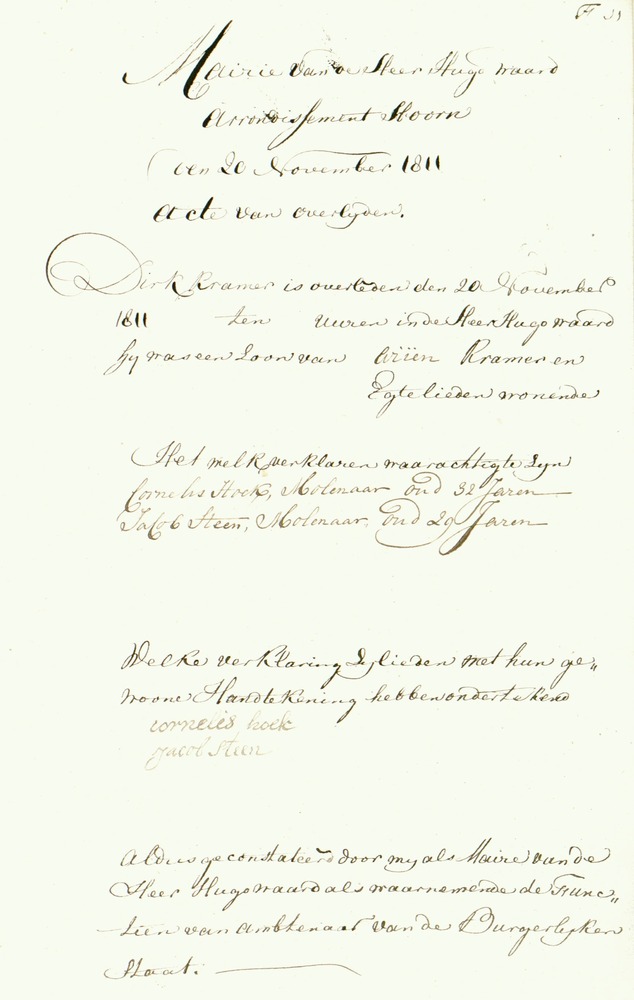 Mairie van de Heer Hugo waard
Arrondissement Hoorn
den 20 November 1811
Acte van overlyden.
Dirk Kramer is overleden den 20 November
1811 ten uuren in de Heer Hugo waard
hy was een Zoon van Ariien Kramer en
Egte lieden wonende
Het welk verklaren waarachtigte Zyn
Cornelis Hoek, Molenaar oud 32 Jaren
Jacob Steen, Molenaar, oud 29 Jaren
Welke verklaring Zylieden met hun ge„
woone Handtekening hebben ondertekend
cornelis hoek
Jacob Steen
Aldus geconstateerd door my als Maire van de
Heer Hugo waard als waarnemende de Func„
tien van Ambtenaar van de Burgerlyken
Staat.